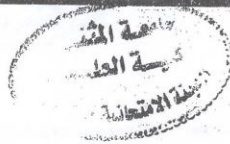 جامعة المثنى
كلية العلوم
اللجنة الامتحانية